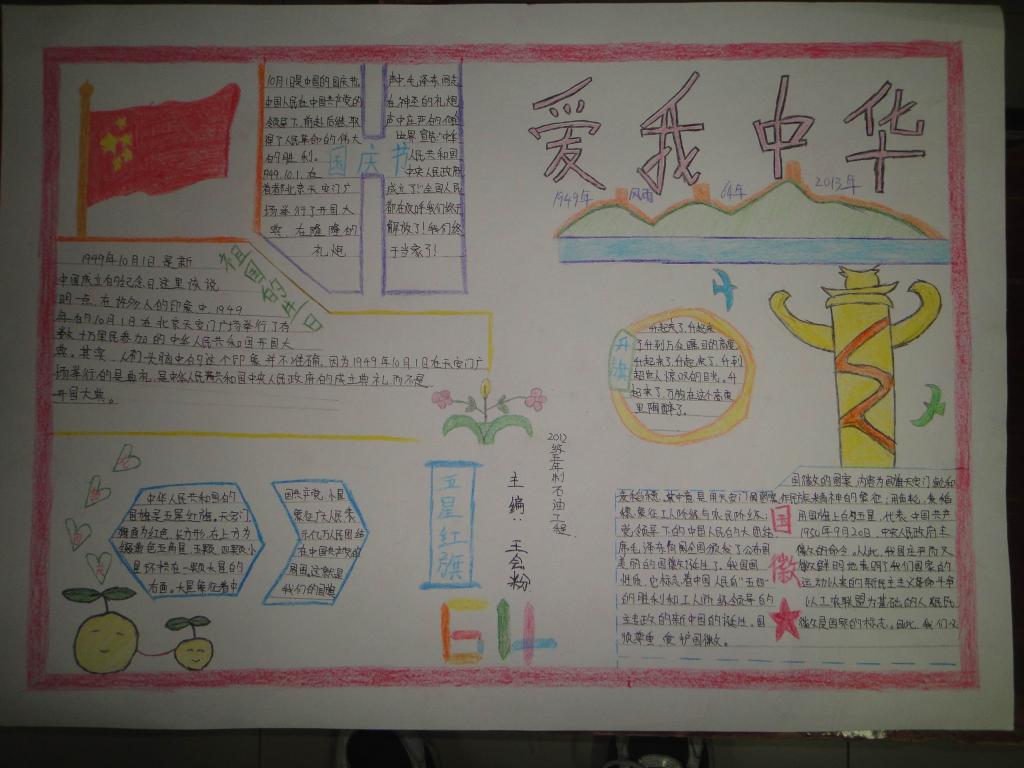 爱我中华
1949年
风雨
64年
2013年
国庆节
10月1日是中国的国庆节
中国人民在中国共产党的
领导下,前赴后继,取
得了人民革命的伟大
的胜利。
1949.10.1.在
首都北京天安门广
场举行了开国大
典,在隆隆的
礼炮
声中,毛泽东同志
世界宣告"中华
人民共和国
中央人民政府
成立了!"全国人民
都在欢呼我们终于
解放了!我们终
于当家了!
祖国的生日
1949年10月1日是新
中国成立的纪念日.这里应说
明一点,在许多人的印象中,1949
年的10月1日在北京天安门广场举行了有
数十万军民参加的中华人民共和国开国大
典。其实,人们头脑中的这个印象并不准确.因为1949年10月1日在天安门广
场举行的是典礼,是中华人民共和国中央人民政府的成立典礼而不是
开国大典。
升旗
升起来了,升起来
了,升到万众瞩目的高度
升起来了,升起来了,升到
超世人惊叹的目光。升
起来了,万物在这个高度
里陶醉了。
中华人民共和国的
国旗是五星红旗。
旗面为红色,长方形,在上方为
星环拱在一颗大星的
右面。大星象征着中
国共产党,小星
象征广大人民表
示亿万人民团结
在中国共产党的
周围,这就是
我们的国旗
五星红旗
2012级五年制石油工程
主编:王会粉
614
国徽
国徽的图案,内容为国旗天安门齿轮和
用国旗上的五星,代表中国共产
1950年9月20日,中央人民政府主
席毛泽东
徽的命令。从此,我国庄严而又
美丽的国徽诞生了。我国国
徽鲜明地表明了我们国家的
性质,它标志着中国人民自"五四"
运动以来的新民主主义革命斗争
的胜利和工人阶级领导的
以工农联盟为基础的人民民
主专政的新中国的诞生。国
徽是国家的标志。因此,我们必
须尊重,爱护国徽。